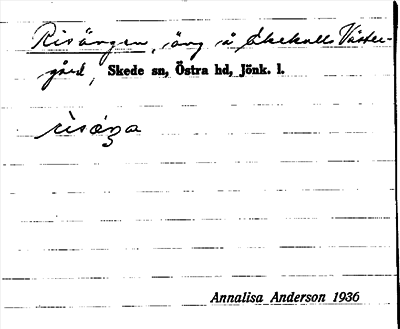 Risängen, äng å Ekekull Väster-
gård, Skede sn, Östra hd, Jönk. l.
rìsæŋa
Annalisa Anderson 1936